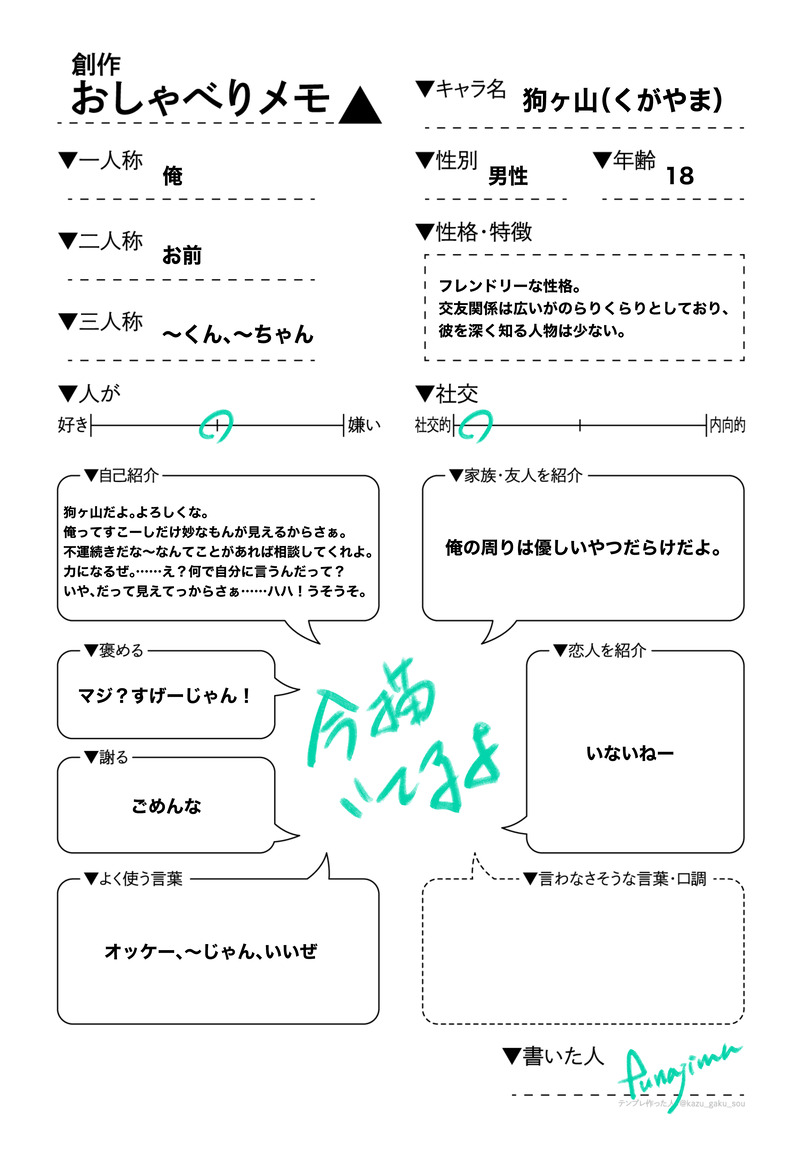 創作
おしゃべりメモ
▼キャラ名 狗ヶ山(くがやま)
▼一人称 俺
▼性別 男性 ▼年齢 18
▼二人称 お前
▼性格・特徴
フレンドリーな性格。
交友関係は広いがのらりくらりとしており、
彼を深く知る人物は少ない。
▼三人称 〜くん、〜ちゃん
▼人が
好き 嫌い
▼社交
社交的 内向的
▼自己紹介
狗ヶ山だよ。よろしくな。
俺ってすこーしだけ妙なもんが見えるからさぁ。
不運続きだな〜なんてことがあれば相談してくれよ。
力になるぜ。……え？何で自分に言うんだって？
いや、だって見えてっからさぁ……ハハ！うそうそ。
▼家族・友人を紹介
俺の周りは優しいやつだらけだよ。
▼褒める
マジ？すげーじゃん！
▼恋人を紹介
いないねー
今描
いてるよ
▼謝る
ごめんな
▼よく使う言葉
オッケー、〜じゃん、いいぜ
▼言わなさそうな言葉・口調
▼書いた人 funajima
テンプレ作った人 @kazu_gaku_sou